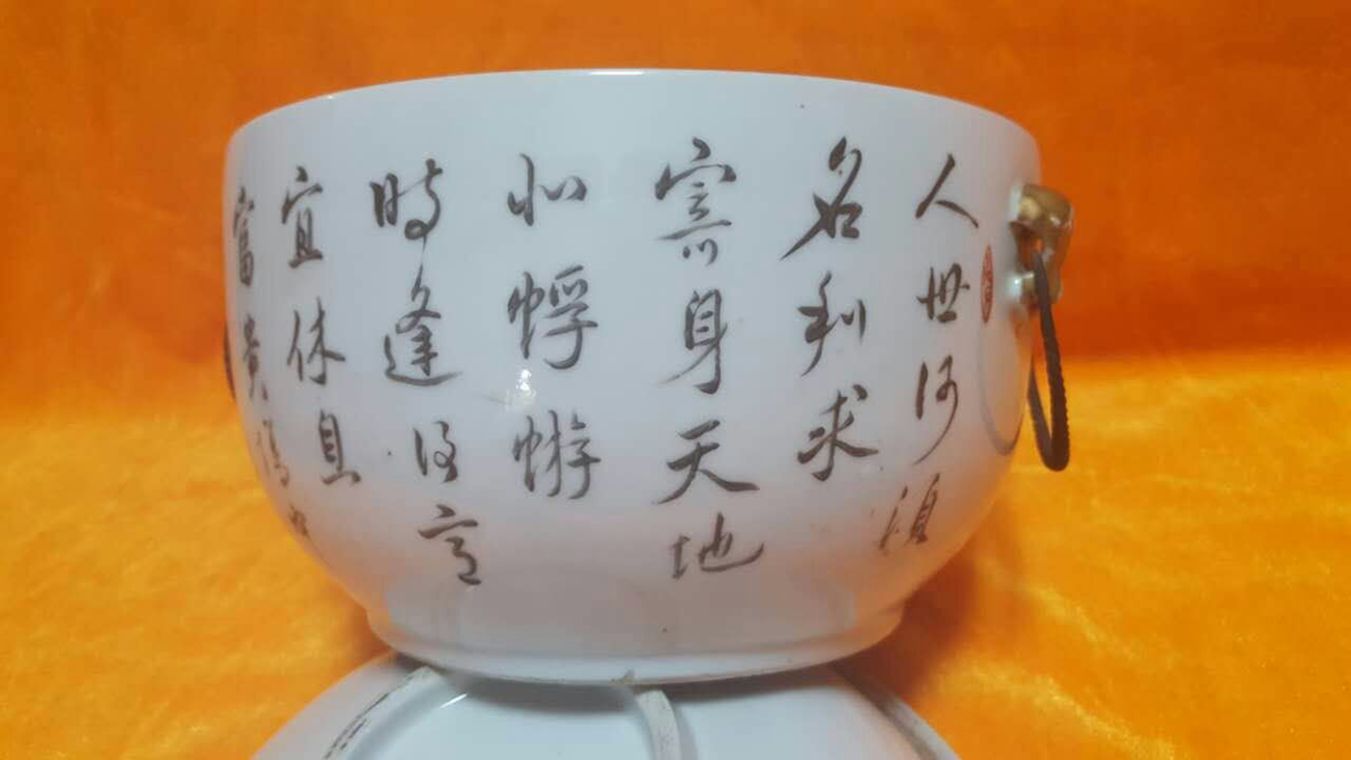 人世何須
名利求
寄身天地
似蜉蝣
時逢得意
宜休息
富貴